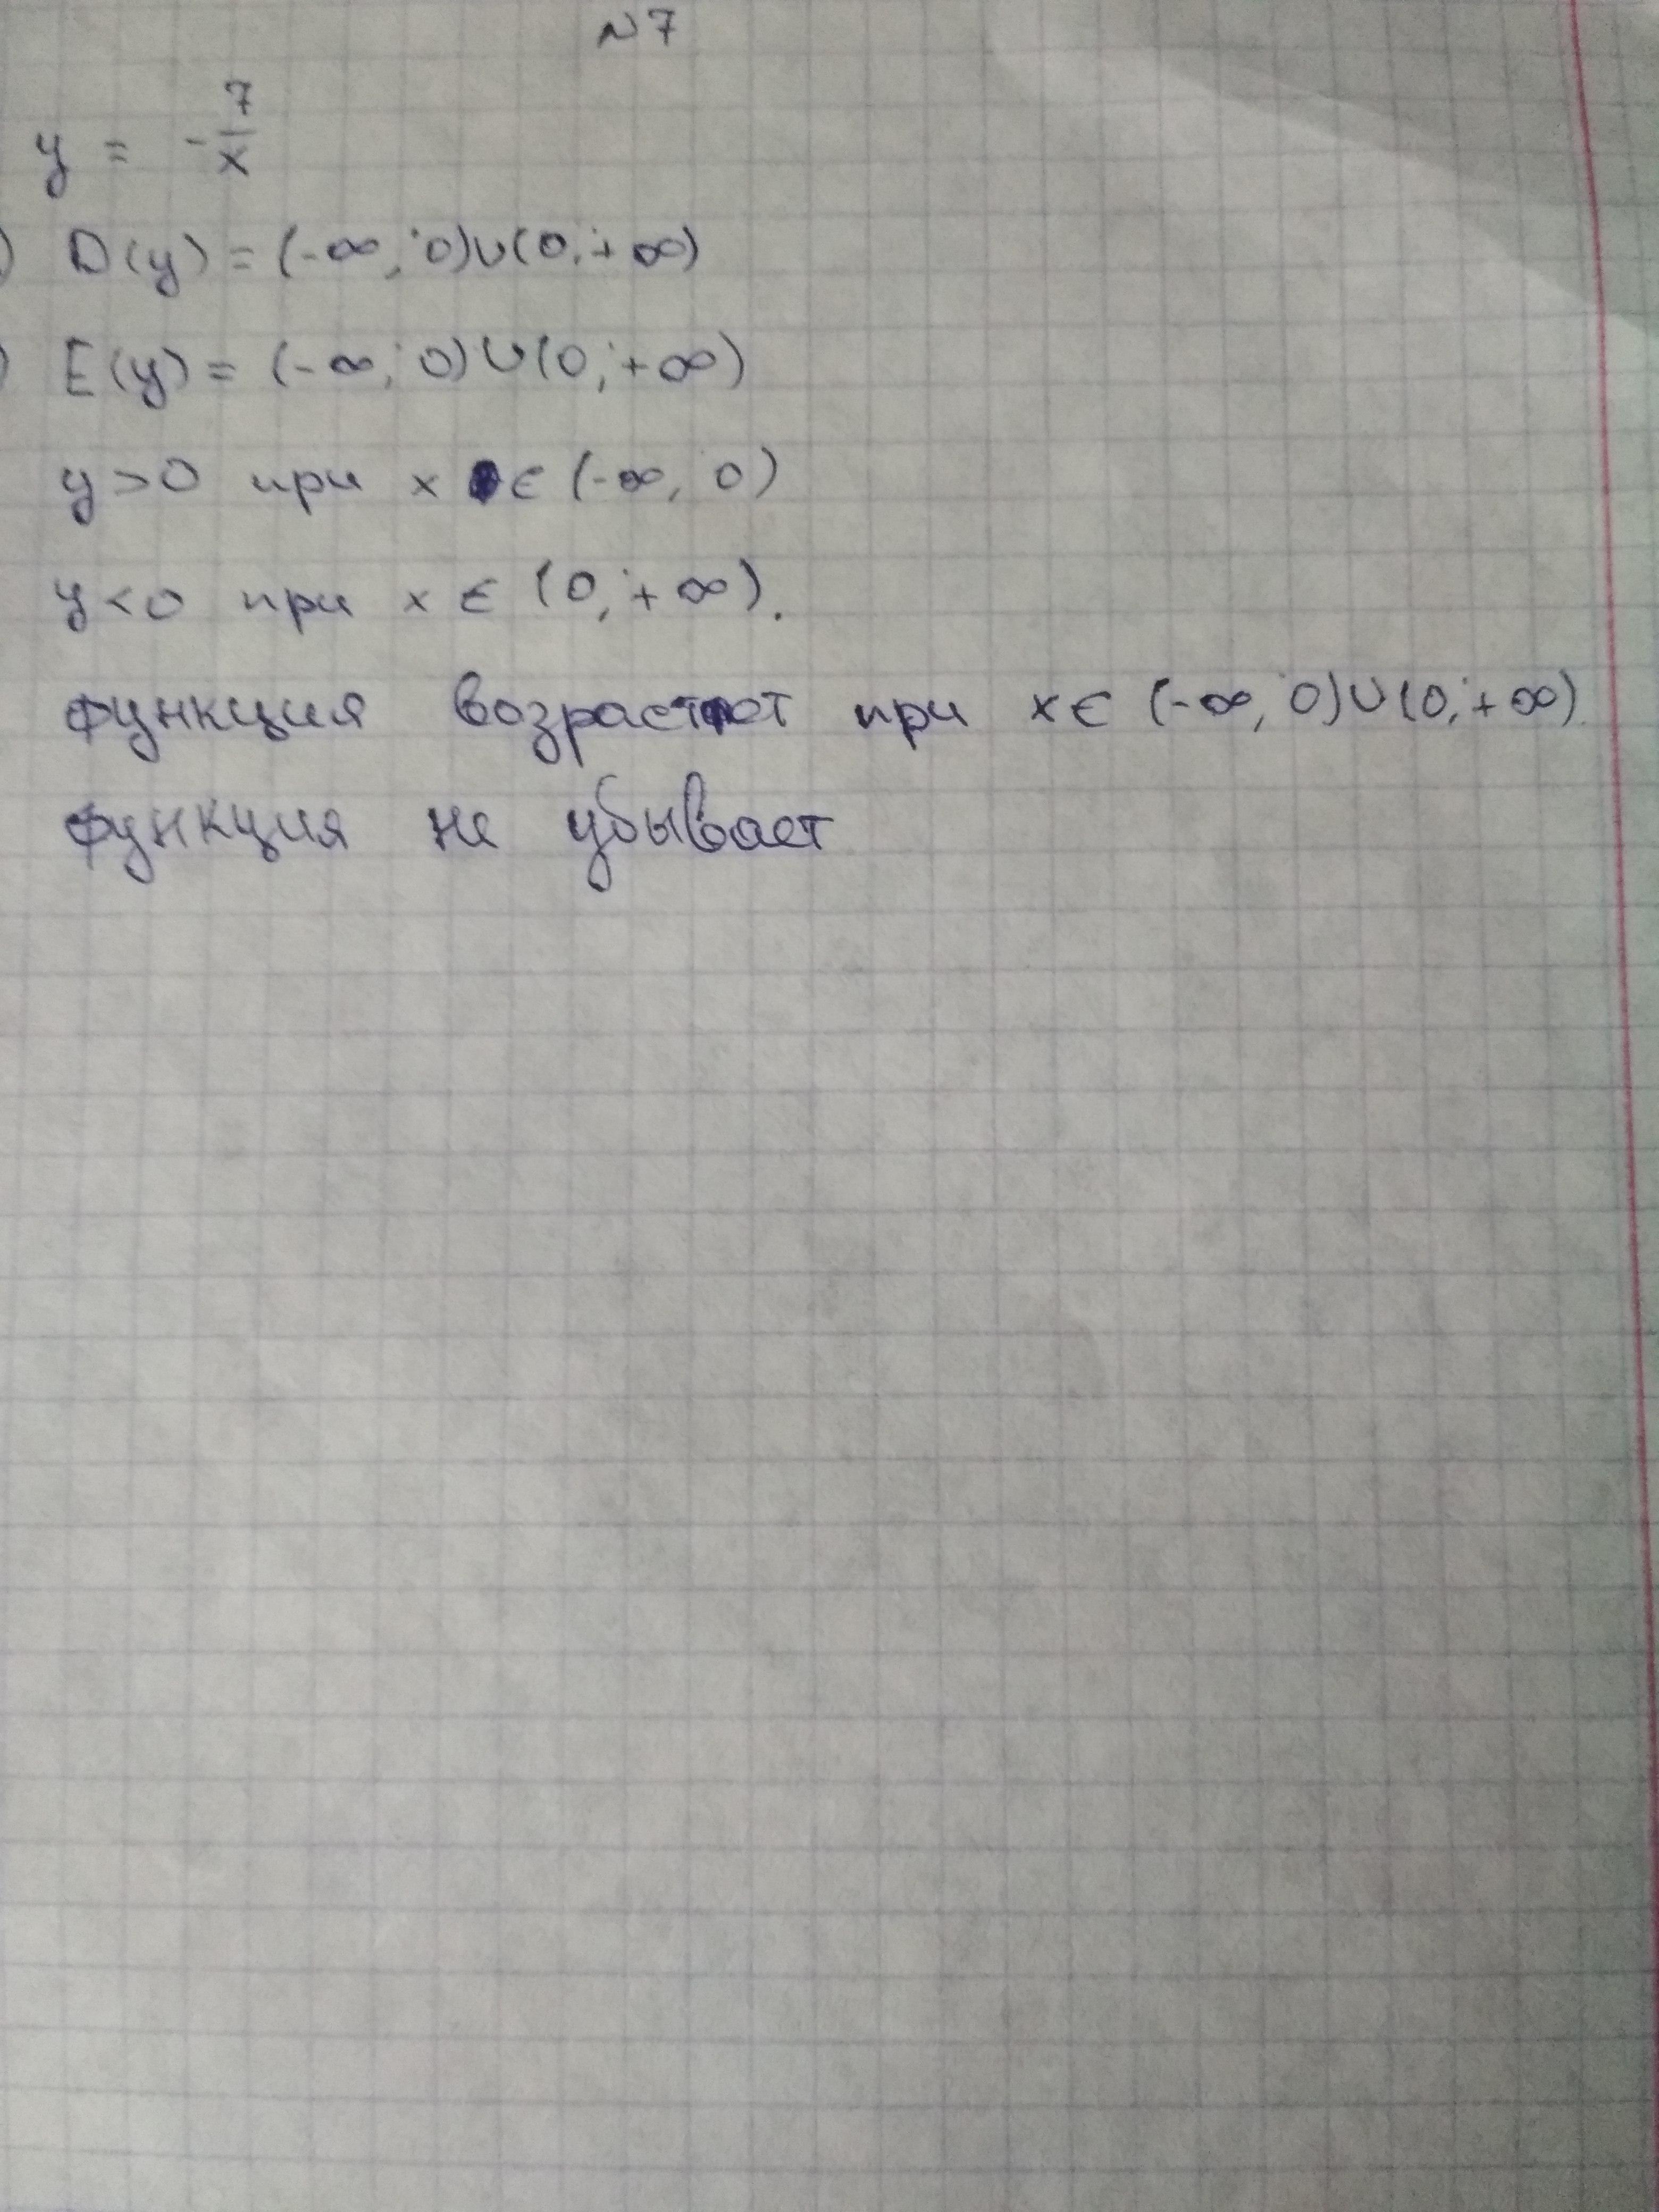 N7
y = -7/x
) D(y) = (-∞; 0)∪(0; +∞)
) E(y) = (-∞; 0)∪(0; +∞)
y>0 при x ∈ (-∞, 0)
y<0 при x ∈ (0; +∞).
функция возрастает при x ∈ (-∞; 0)∪(0; +∞).
функция не убывает